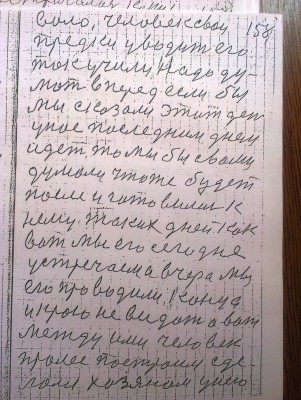 158
было, человек свои
предки уводит его
так учили, надо ду-
мат вперед если бы
мы сказали этит ден
у нас последним днем
идет то мы бы с вами
думали что же будет
после и готовилис к
нему. таких дней как
вот мы его сегодне
устречаем а вчера мы
его проводили. Конца
и краю не видат а вот
между ими человек
пролес построил сде-
лали хозяном у него